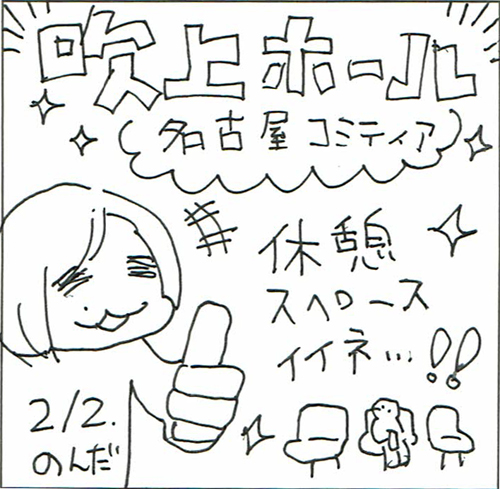 吹上ホール
(名古屋コミティア)
休憩
スペロース
イイネ…!!
2/2.
のんだ